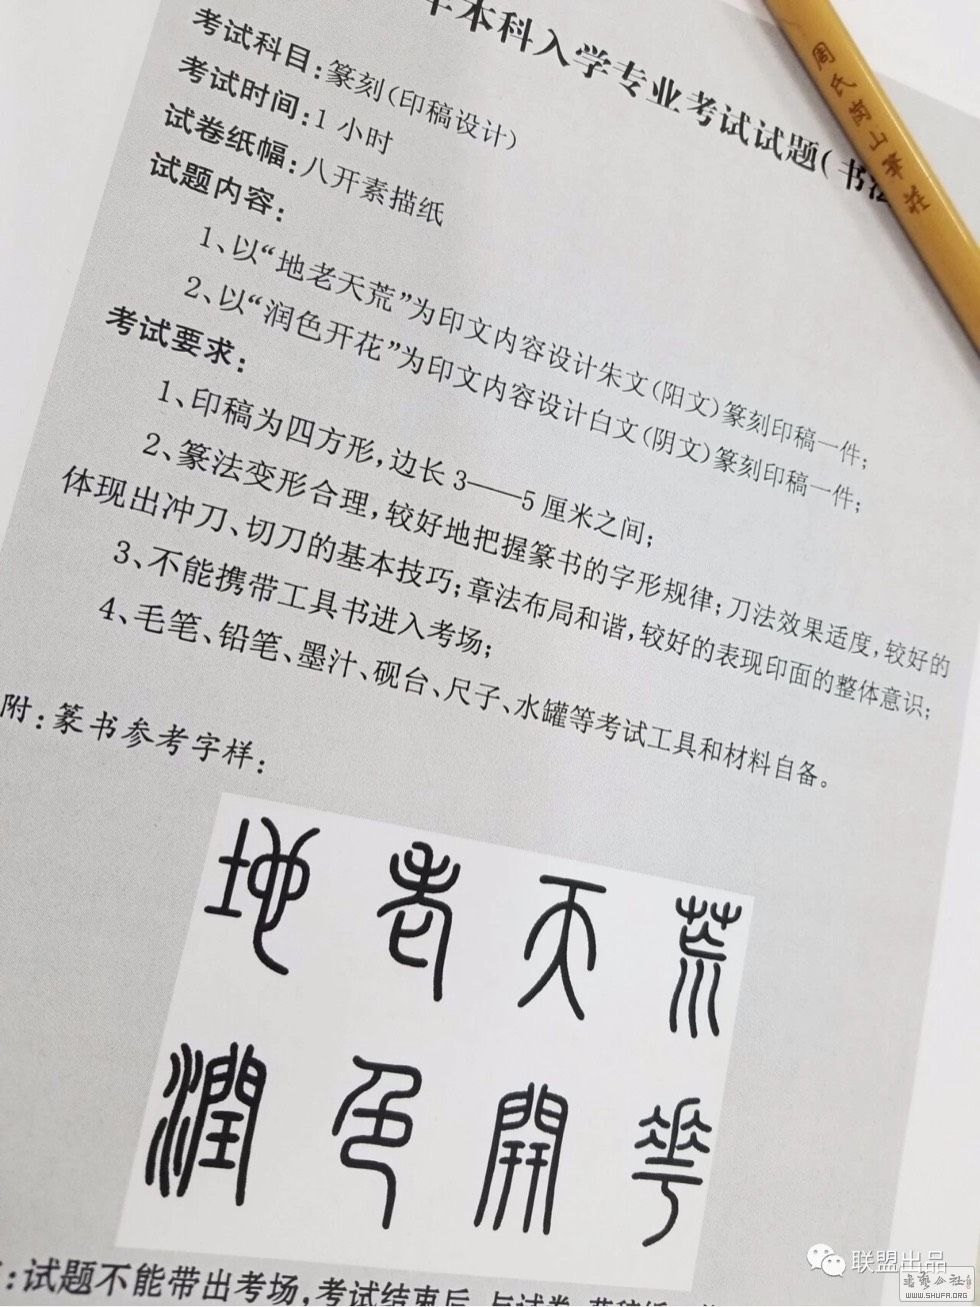 年本科入学专业考试试题（书法
考试科目：篆刻（印稿设计）
考试时间：1小时
试卷纸幅：八开素描纸
试题内容：
1、以“地老天荒”为印文内容设计朱文（阳文）篆刻印稿一件；
2、以“润色开花”为印文内容设计白文（阴文）篆刻印稿一件；
考试要求：
1、印稿为四方形，边长3——5厘米之间；
2、篆法变形合理，较好地把握篆书的字形规律；刀法效果适度，较好的
体现出冲刀、切刀的基本技巧；章法布局和谐，较好的表现印面的整体意识；
3、不能携带工具书进入考场；
4、毛笔、铅笔、墨汁、砚台、尺子、水罐等考试工具和材料自备。
附：篆书参考字样：
地老天荒
潤色開花
：试题不能带出考场，考试结束后，与试卷、草稿纸
周氏岗山筆莊
联盟出品
書藝公社
WWW.SHUFA.ORG